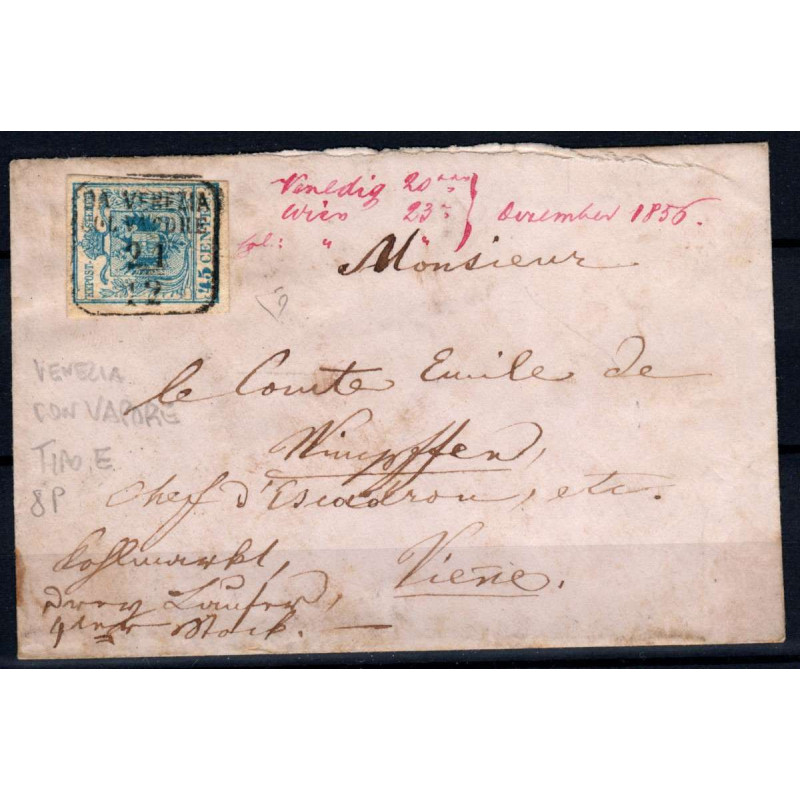 DA VENEZIA
COL VAPORE
21
12
45 CENTES
Venedig 20
Wien 23
fol: " "
Dezember 1856.
Monsieur
le Comte Emile de
Wimpffen,
Chef d'Escadron, etc.
Vieñe.
Kohlmarkt,
drey Laufer,
4ter Stock. —
VENEZIA
CON VAPORE
TIPO E
8P